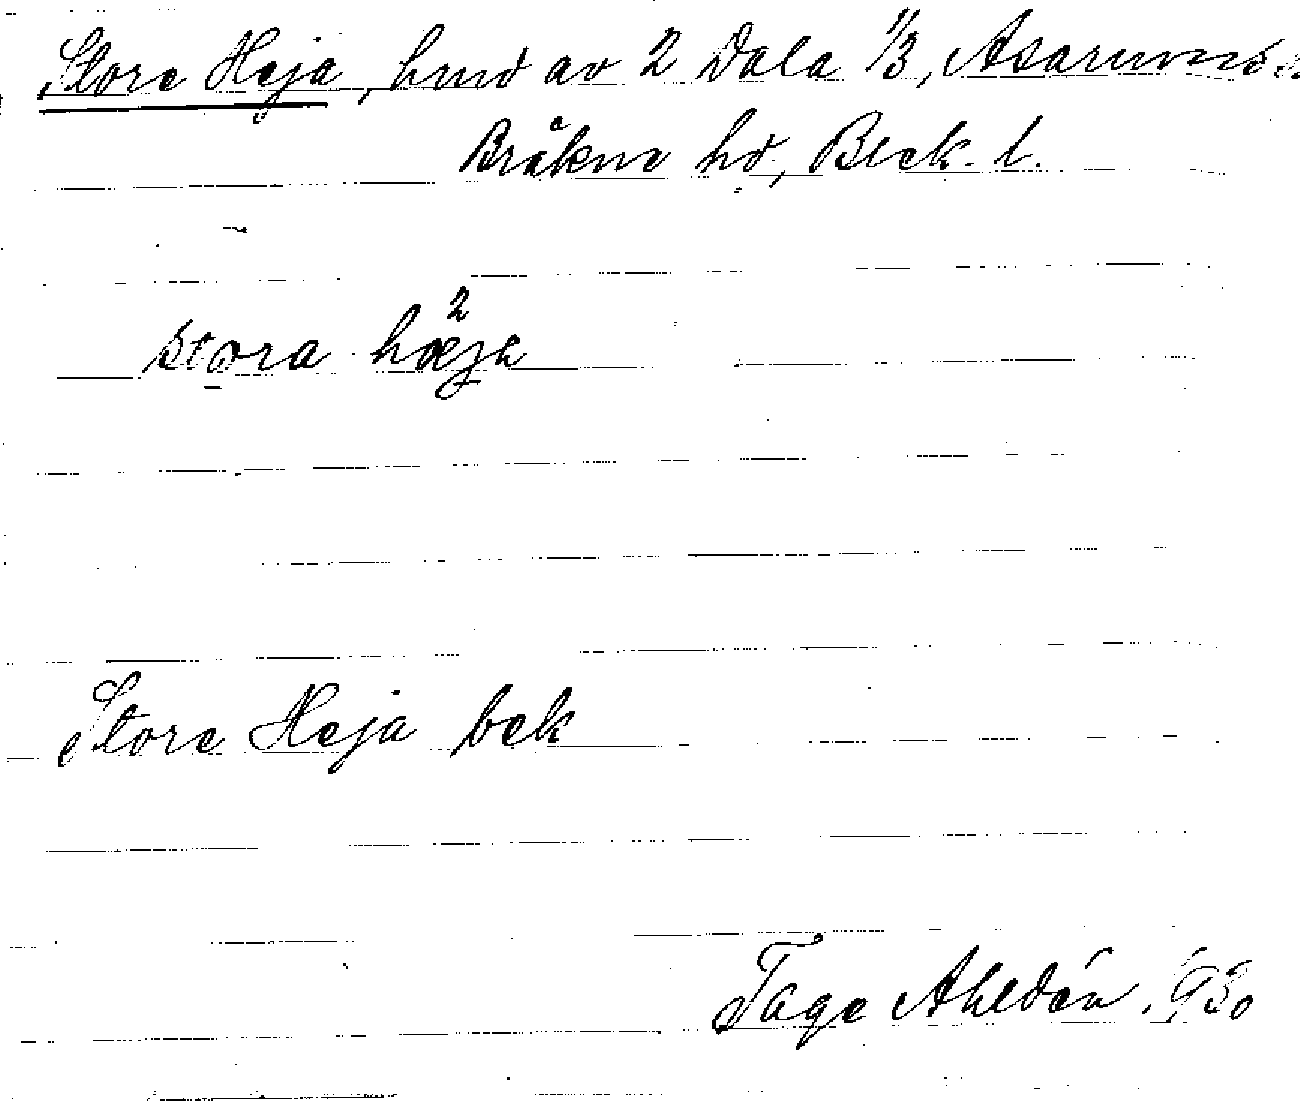 Store Heja, hmd av 2 Dala 1/3, Asarums sn
Bräkne hd, Blek. l.
stora hæ²ja
Store Heja bek
Tage Ahldén. 1930